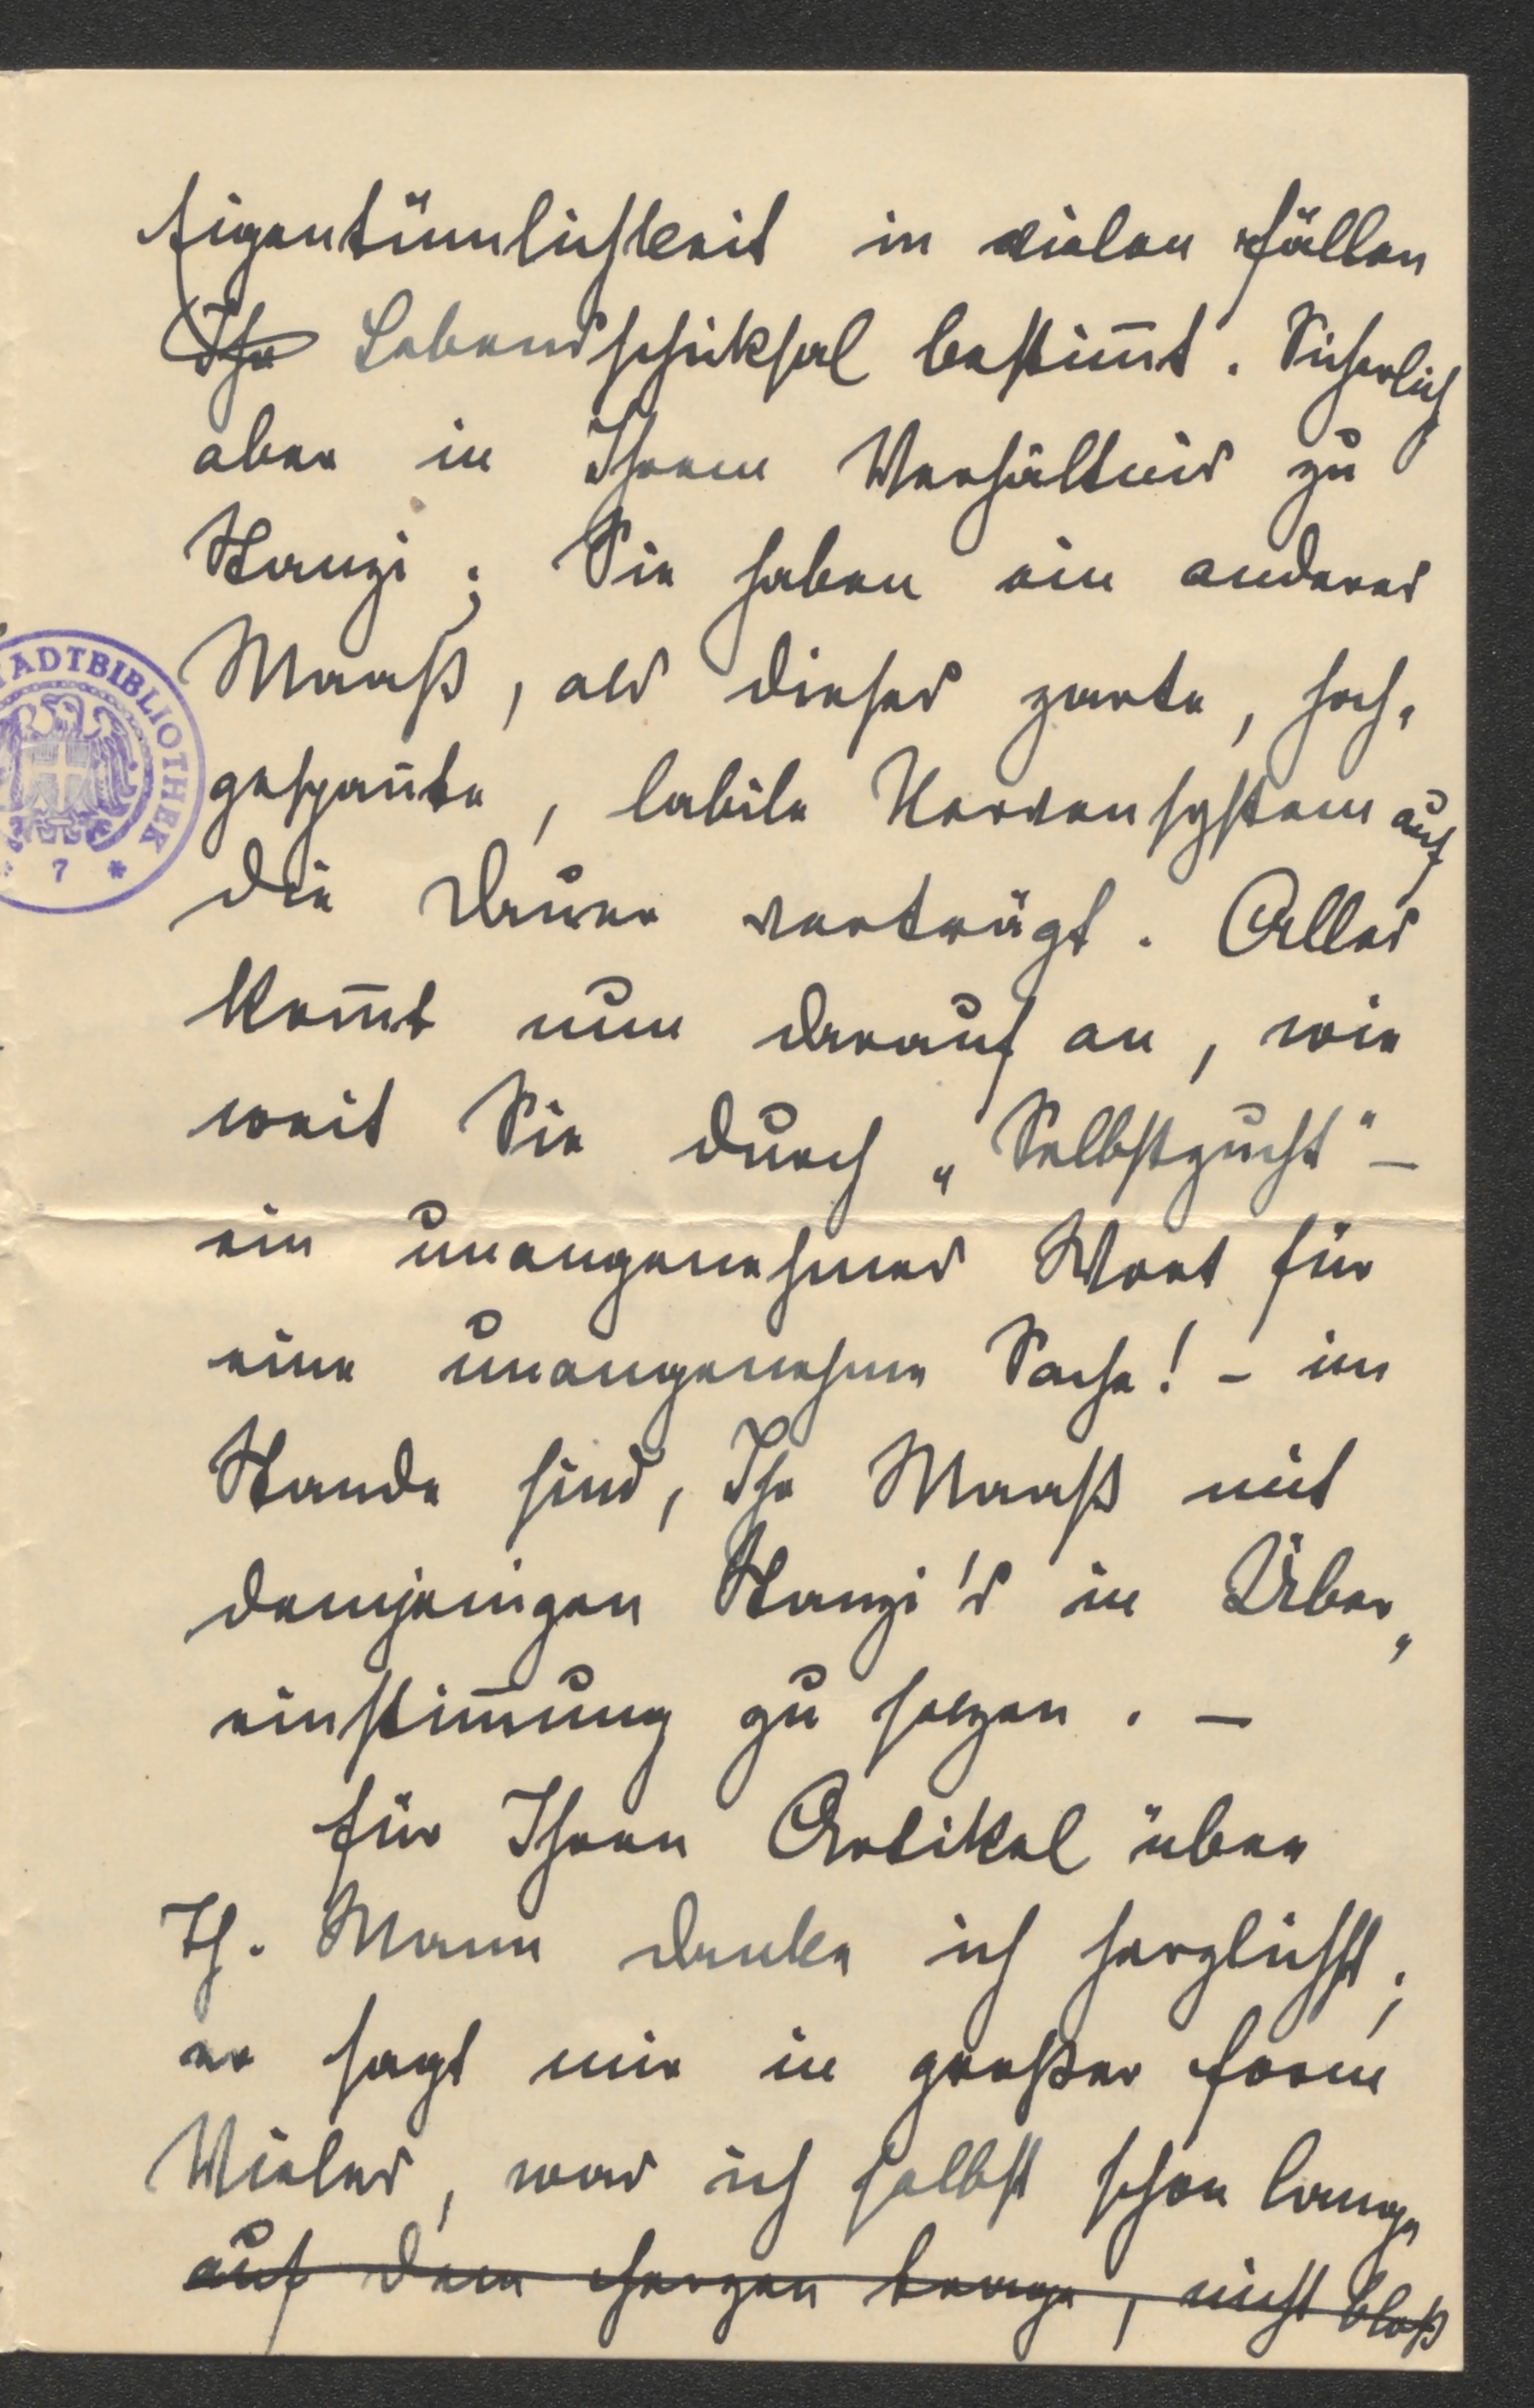 Eigentümlichkeit in vielen Fällen
Ihr Lebensschiksal bestim̅t. Sicherlich
aber in Ihrem Verhältnis zu
Stanzi; Sie haben ein anderes
Maaß, als dieses zarte, hoch-
gespan̅te, labile Nervensystem auf
die Dauer verträgt. Alles
kom̅t nun darauf an, wie
weit Sie durch „Selbstzucht" –
ein unangenehmes Wort für
eine unangenehme Sache! – im
Stande sind, Ihr Maaß mit
demjenigen Stanzi's in Über-
einstim̅ung zu setzen. –
Für Ihren Artikel über
Th. Mann danke ich herzlichst;
er sagt mir in großer Form
Vieles, was ich selbst schon lange
auf dem Herzen trage, nicht bloß
STADTBIBLIOTHEK
* 7 *